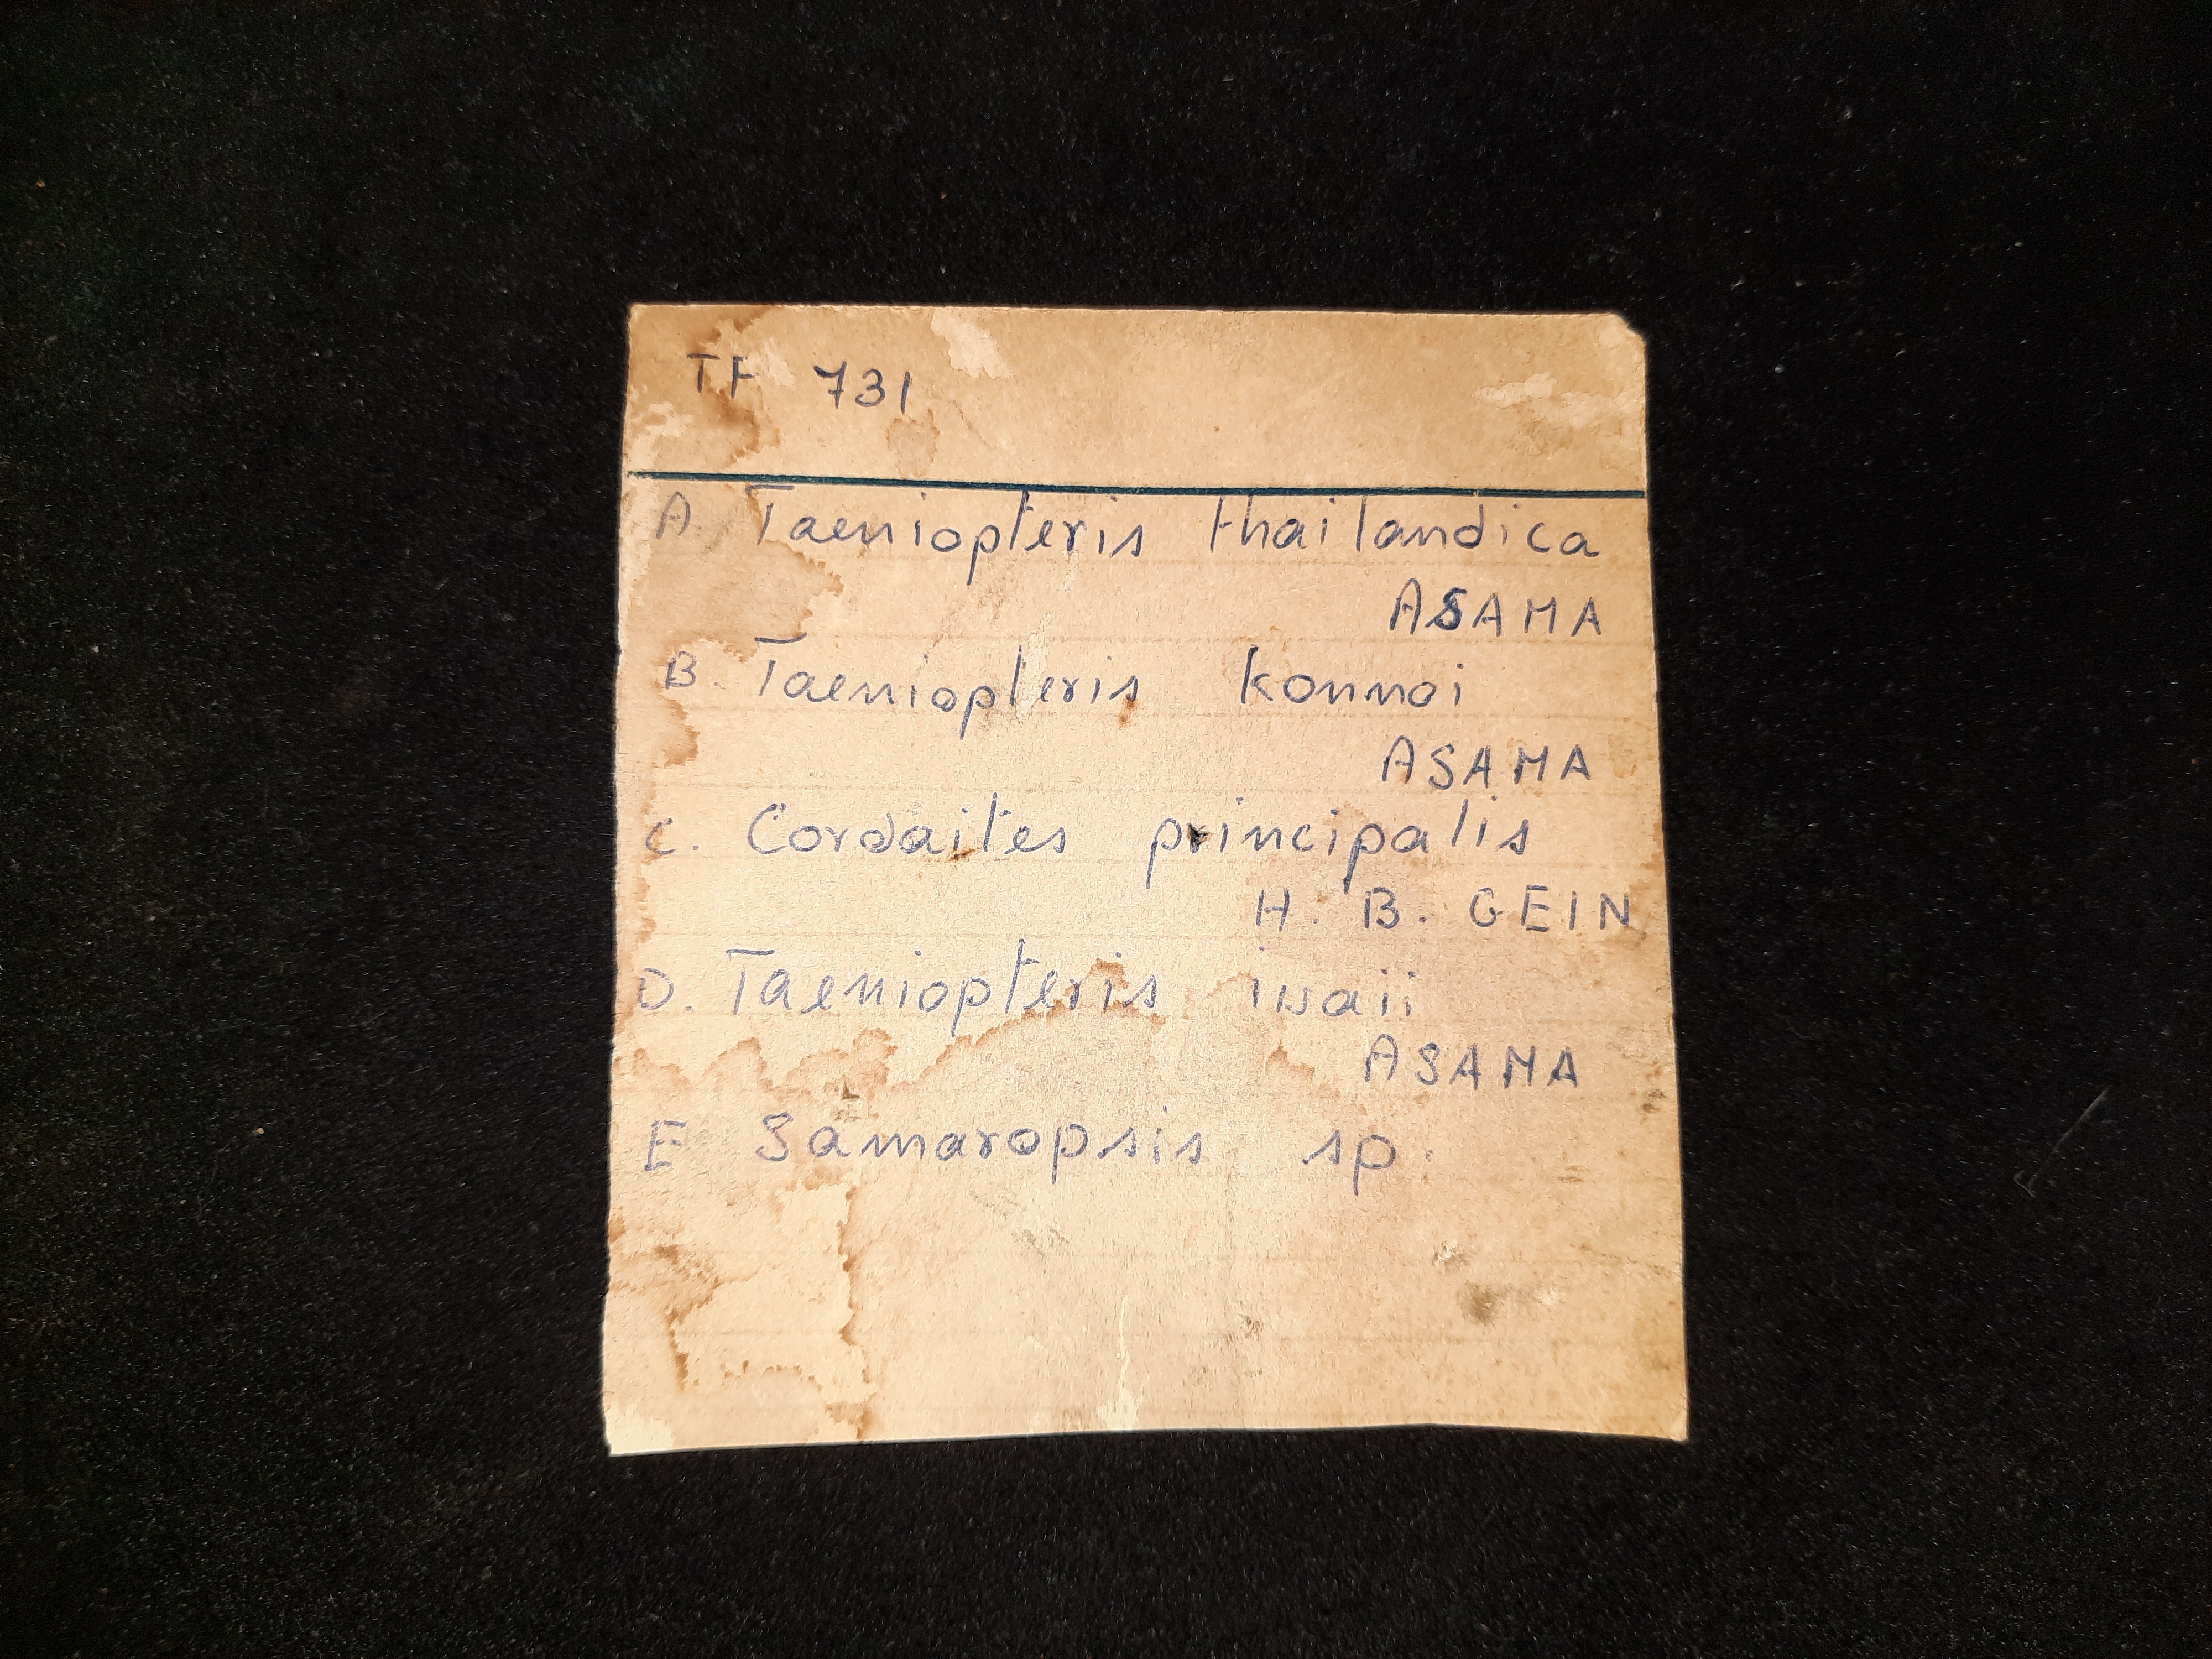 TF 731
A. Taeniopteris thailandica
ASAMA
B. Taeniopteris konnoi
ASAMA
C. Cordaites principalis
H. B. GEIN
D. Taeniopteris iwaii
ASAMA
E Samaropsis sp.